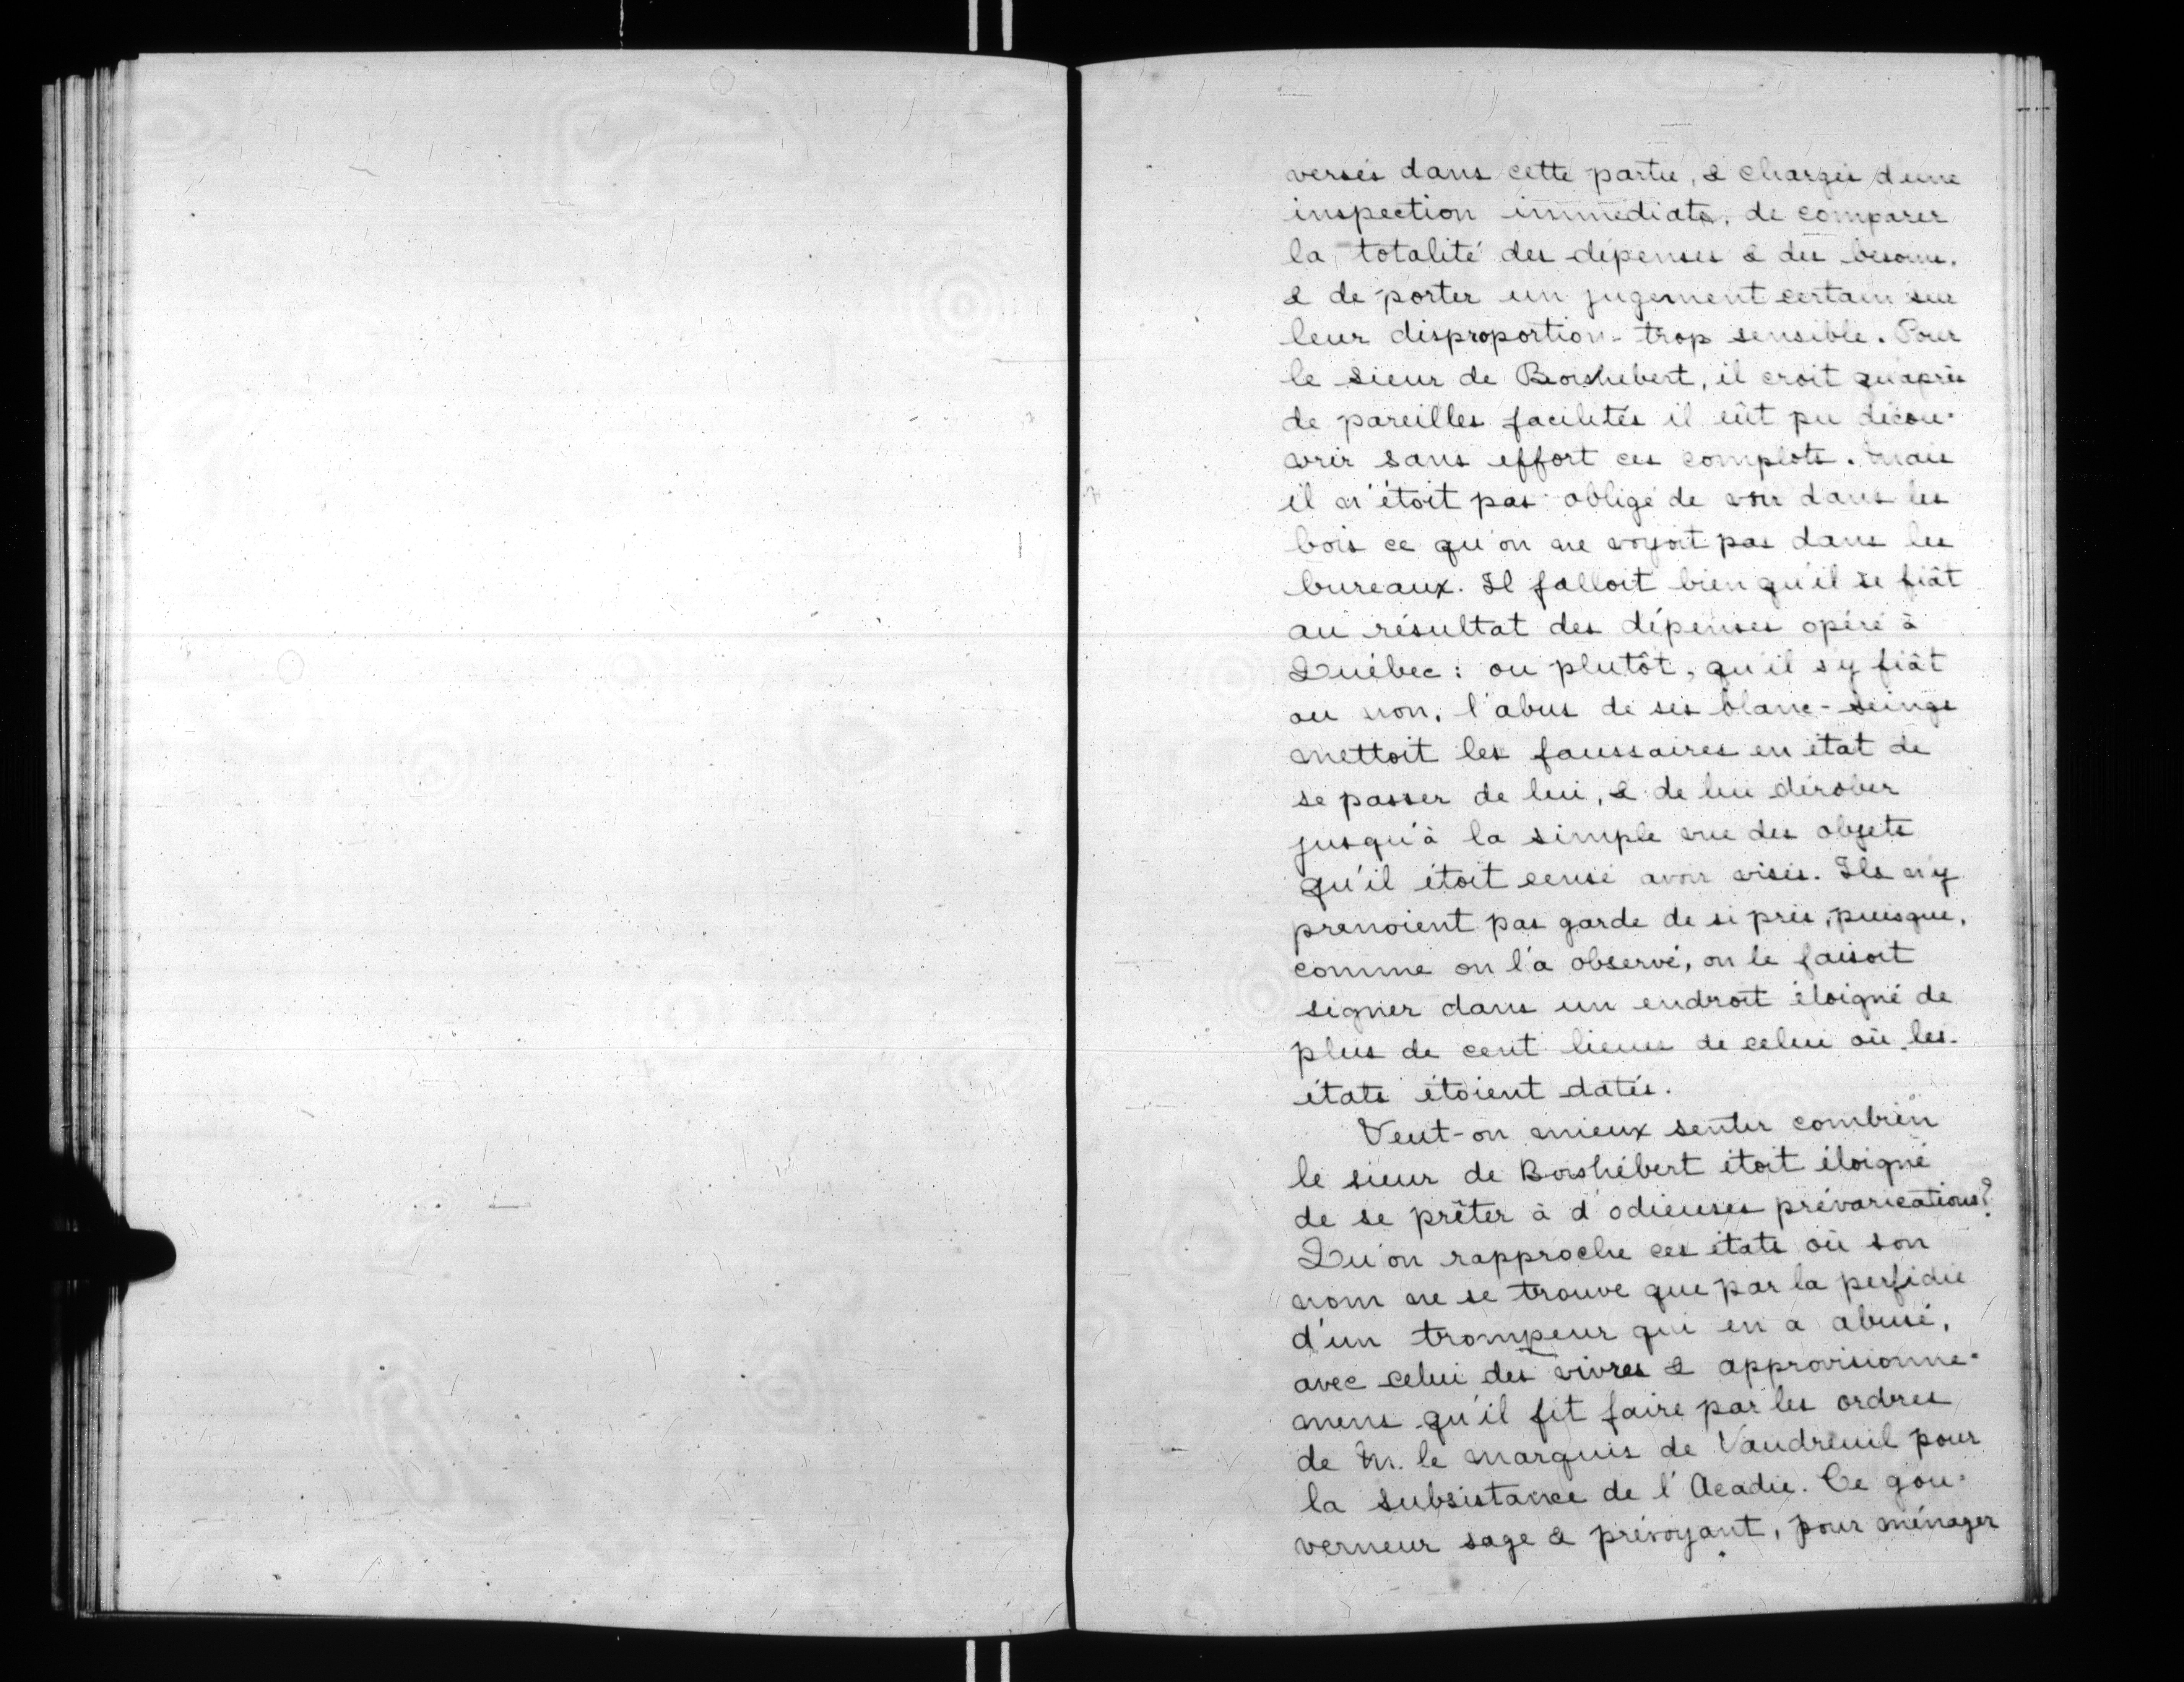 versés dans cette partie, & chargés d'une
inspection immédiate, de comparer
la totalité des dépenses & des besoins,
& de porter un jugement certain sur
leur disproportion trop sensible. Pour
le sieur de Boishébert, il croit qu'après
de pareilles facilités il eût pu décou-
vrir sans effort ces complots. Mais
il n'étoit pas obligé de voir dans les
bois ce qu'on ne voyoit pas dans les
bureaux. Il falloit bien qu'il se fiât
au résultat des dépenses opéré à
Québec : ou plutôt, qu'il s'y fiât
ou non, l'abus de ses blanc-seings
mettoit les faussaires en état de
se passer de lui, & de lui dérober
jusqu'à la simple vue des objets
qu'il étoit censé avoir visés. Ils n'y
prenoient pas garde de si près, puisque,
comme on l'a observé, on le faisoit
signer dans un endroit éloigné de
plus de cent lieues de celui où les
états étoient datés.
Veut-on mieux sentir combien
le sieur de Boishébert étoit éloigné
de se prêter à d'odieuses prévarications?
Qu'on rapproche ces états où son
nom ne se trouve que par la perfidie
d'un trompeur qui en a abusé,
avec celui des vivres & approvisionne-
mens qu'il fit faire par les ordres
de M. le marquis de Vaudreuil pour
la subsistance de l'Acadie. Ce gou-
verneur sage & prévoyant, pour ménager